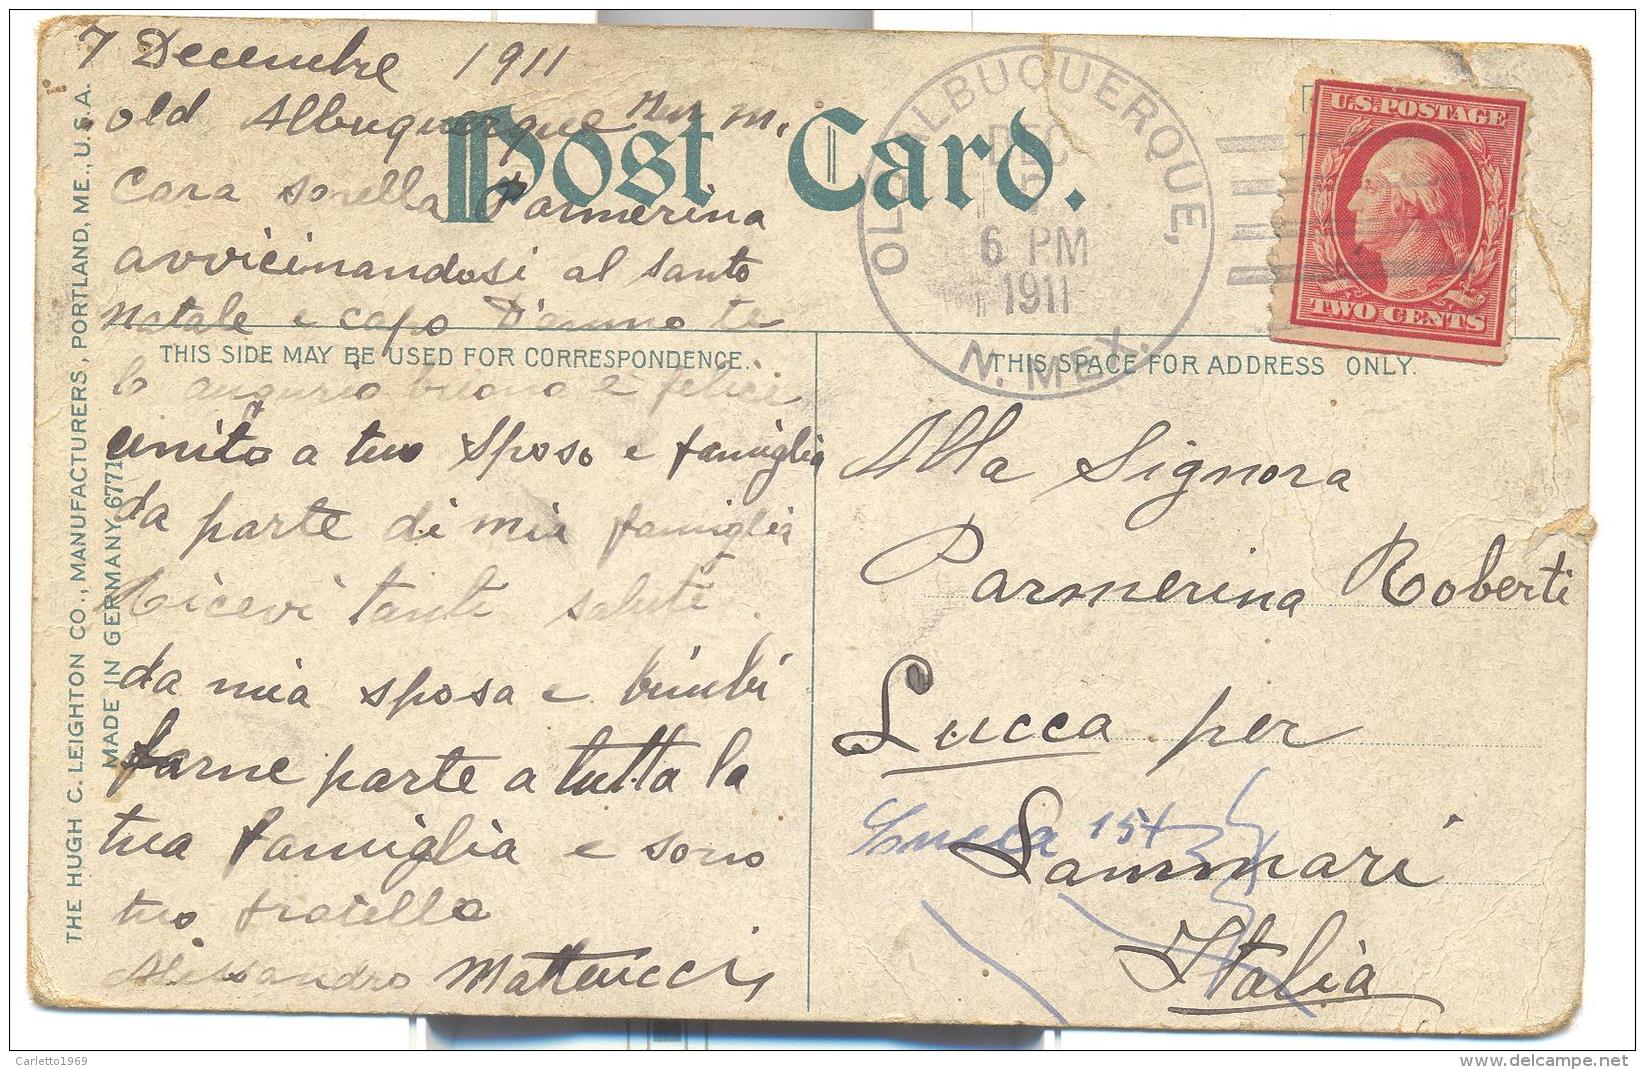 7 Decembre 1911
old Albuquerque New M.
Post Card.
Cara sorella Parmerina
avvicinandosi al santo
Natale e capo D'anno te
THIS SIDE MAY BE USED FOR CORRESPONDENCE.
lo augurio buono e felici
unito a tuo sposo e famiglia
da parte di mia famiglia
Ricevi tanti saluti
da mia sposa e bimbi
farne parte a tutta la
tua famiglia e sono
tuo fratello
Alessandro Matteucci
THE HUGH C. LEIGHTON CO., MANUFACTURERS, PORTLAND, ME., U.S.A.
MADE IN GERMANY 6771
OLD ALBUQUERQUE,
DEC
6 PM
1911
N. MEX.
U.S. POSTAGE
TWO CENTS
THIS SPACE FOR ADDRESS ONLY.
Alla Signora
Parmerina Roberti
Lucca per
Lucca
Lammari
Italia
Carletto1969
delcampe.net